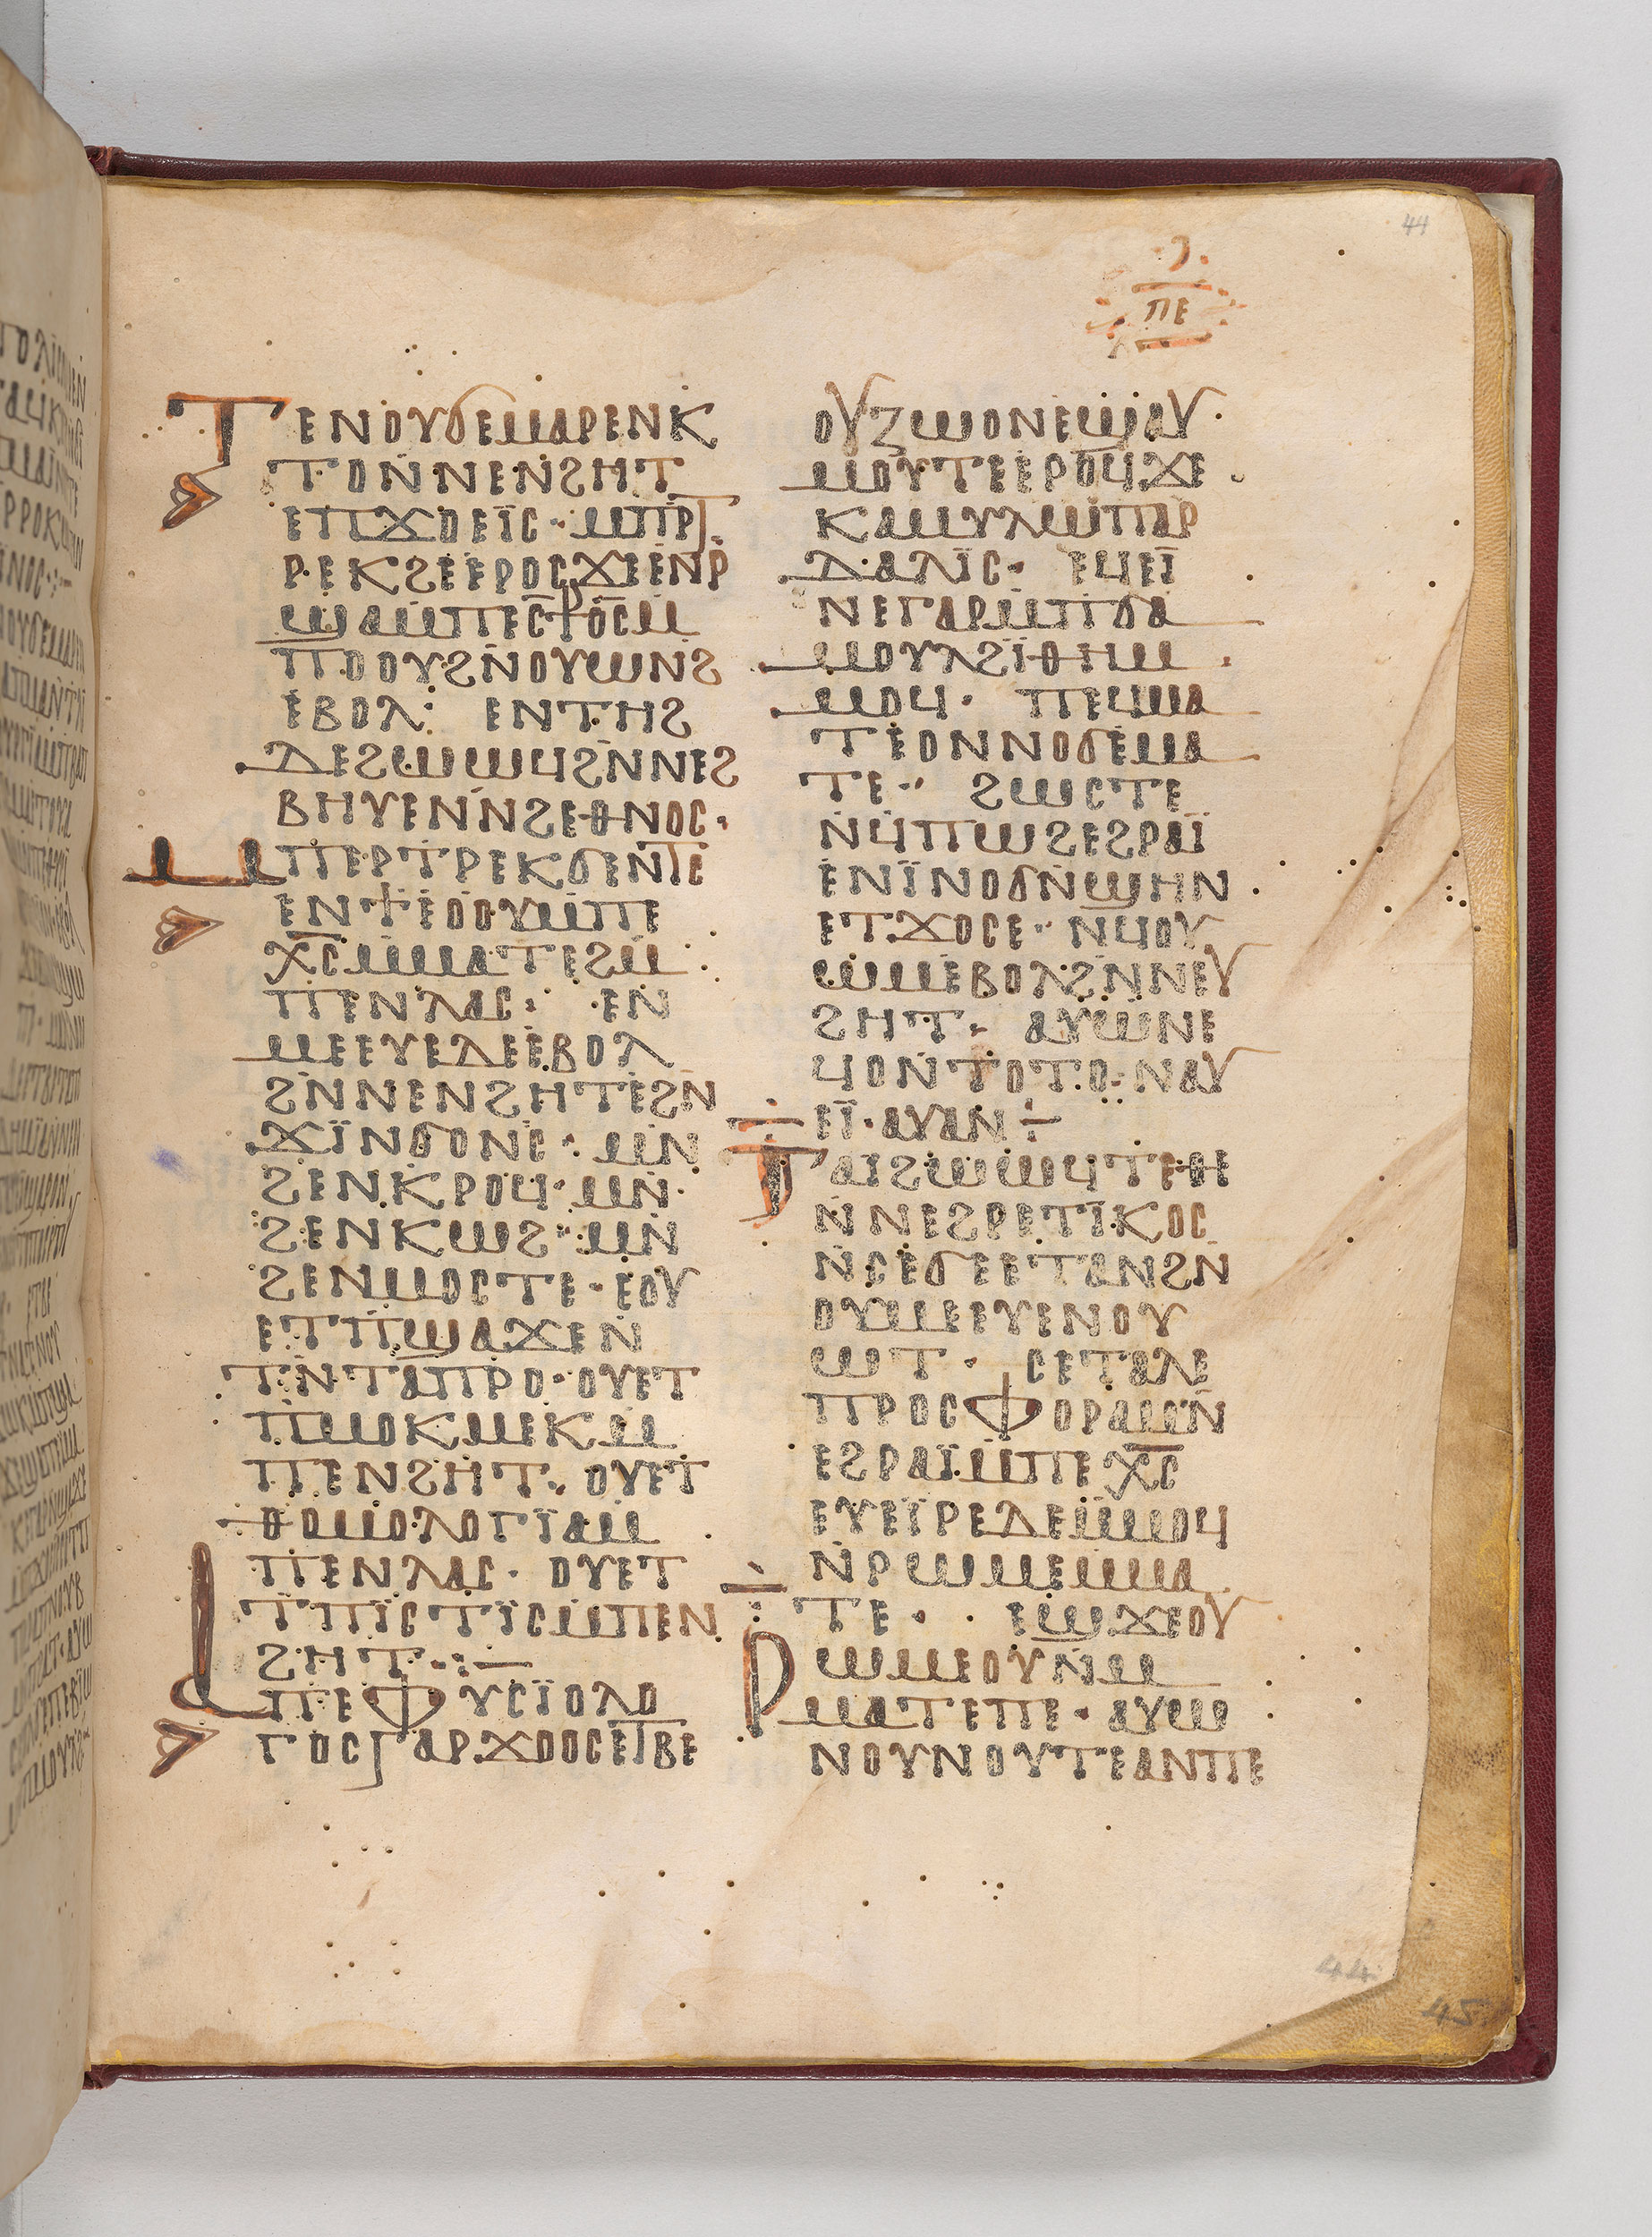 44
ⲡⲉ
ⲧⲉⲛⲟⲩϭⲉⲙⲁⲣⲉⲛⲕ
ⲧⲟⲛⲛⲛⲉⲛϩⲏⲧ
ⲉⲡϫⲟⲉⲓⲥ· ⲙⲡⲣⲧ
ⲣⲉⲕϩⲉⲉⲣⲟⲥϫⲉⲉⲛⲣ
ϣⲁⲙⲡⲉⲥ⳨ⲟⲥⲙ
ⲡⲟⲟⲩϩⲛⲟⲩⲱⲛϩ
ⲉⲃⲟⲗ: ⲉⲛⲧⲏϩ
ⲇⲉϩⲱⲱϥϩⲛⲛⲉϩ
ⲃⲏⲩⲉⲛⲛϩⲉⲑⲛⲟⲥ·
ⲙⲡⲉⲣⲧⲣⲉⲕϭⲛⲧⲥ
ⲉⲛϯⲉⲟⲟⲩⲙⲡⲉ
ⲭⲥⲙⲙⲁⲧⲉϩⲙ
ⲡⲉⲛⲗⲁⲥ· ⲉⲛ
ⲙⲉⲉⲩⲉⲇⲉⲉⲃⲟⲗ
ϩⲛⲛⲉⲛϩⲏⲧⲉϩⲛ
ϫⲓⲛϭⲟⲛⲥ· ⲙⲛ
ϩⲉⲛⲕⲣⲟϥ· ⲙⲛ
ϩⲉⲛⲕⲱϩ· ⲙⲛ
ϩⲉⲛⲙⲟⲥⲧⲉ· ⲉⲟⲩ
ⲉⲧⲡϣⲁϫⲉⲛ
ⲧⲛⲧⲁⲡⲣⲟ· ⲟⲩⲉⲧ
ⲡⲙⲟⲕⲙⲉⲕⲙ
ⲡⲉⲛϩⲏⲧ· ⲟⲩⲉⲧ
ⲑⲟⲙⲟⲗⲟⲅⲓⲁⲙ
ⲡⲉⲛⲗⲁⲥ· ⲟⲩⲉⲧ
ⲧⲡⲓⲥⲧⲓⲥⲙⲡⲉⲛ
ϩⲏⲧ·:—
ⲁⲡⲉⲫⲩⲥⲓⲟⲗⲟ
ⲅⲟⲥⲅⲁⲣϫⲟⲟⲥⲉⲧⲃⲉ
ⲟⲩⲍⲱⲟⲛⲉϣⲁⲩ·
ⲙⲟⲩⲧⲉⲉⲣⲟϥϫⲉ
ⲕⲁⲙⲩⲗⲱⲡⲁⲣ
ⲇⲁⲗⲓⲥ· ⲉϥⲉⲓ
ⲛⲉⲅⲁⲣⲙⲡϭⲁ
ⲙⲟⲩⲗϩⲓⲑⲏⲙ
ⲙⲟϥ· ⲡⲉϥⲙⲁ
ⲧⲉⲟⲛⲛⲟϭⲉⲙⲁ
ⲧⲉ·· ϩⲱⲥⲧⲉ
ⲛϥⲡⲱϩⲉϩⲣⲁⲓ
ⲉⲛⲓⲛⲟϭⲛϣⲏⲛ
ⲉⲧϫⲟⲥⲉ· ⲛϥⲟⲩ
ⲱⲙⲉⲃⲟⲗϩⲛⲛⲉⲩ
ϩⲏⲧ· ⲁⲩⲱⲛⲉ
ϥⲟⲛⲧⲟⲧⲟ·ⲛⲁⲩ
ⲉⲓ·ⲁⲩⲁⲛ÷
ⲧⲁⲓϩⲱⲱϥⲧⲉⲑⲉ
ⲛⲛⲉϩⲣⲉⲧⲓⲕⲟⲥ
ⲛⲥⲉϭⲉⲉⲧⲁⲛϩⲛ
ⲟⲩⲙⲉⲉⲩⲉⲛⲟⲩ
ⲱⲧ· ⲥⲉⲧⲁⲗⲉ
ⲡⲣⲟⲥⲫⲟⲣⲁⲙⲉⲛ
ⲉϩⲣⲁⲓⲙⲡⲉⲭⲥ
ⲉⲩⲉⲓⲣⲉⲇⲉⲙⲙⲟϥ
ⲛⲣⲱⲙⲉⲙⲙⲁ
ⲧⲉ· ⲉϣϫⲉⲟⲩ
ⲣⲱⲙⲉⲟⲩⲛⲙ
ⲙⲁⲧⲉⲡⲉ· ⲁⲩⲱ
ⲛⲟⲩⲛⲟⲩⲧⲉⲁⲛⲡⲉ
44
45